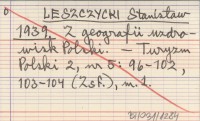 LESZCZYCKI Stanisław
1939. Z geografii uzdro-
wisk Polski. — Turyzm
Polski 2, nr 5: 96-102,
103-104 (Zsf.), m. 1.